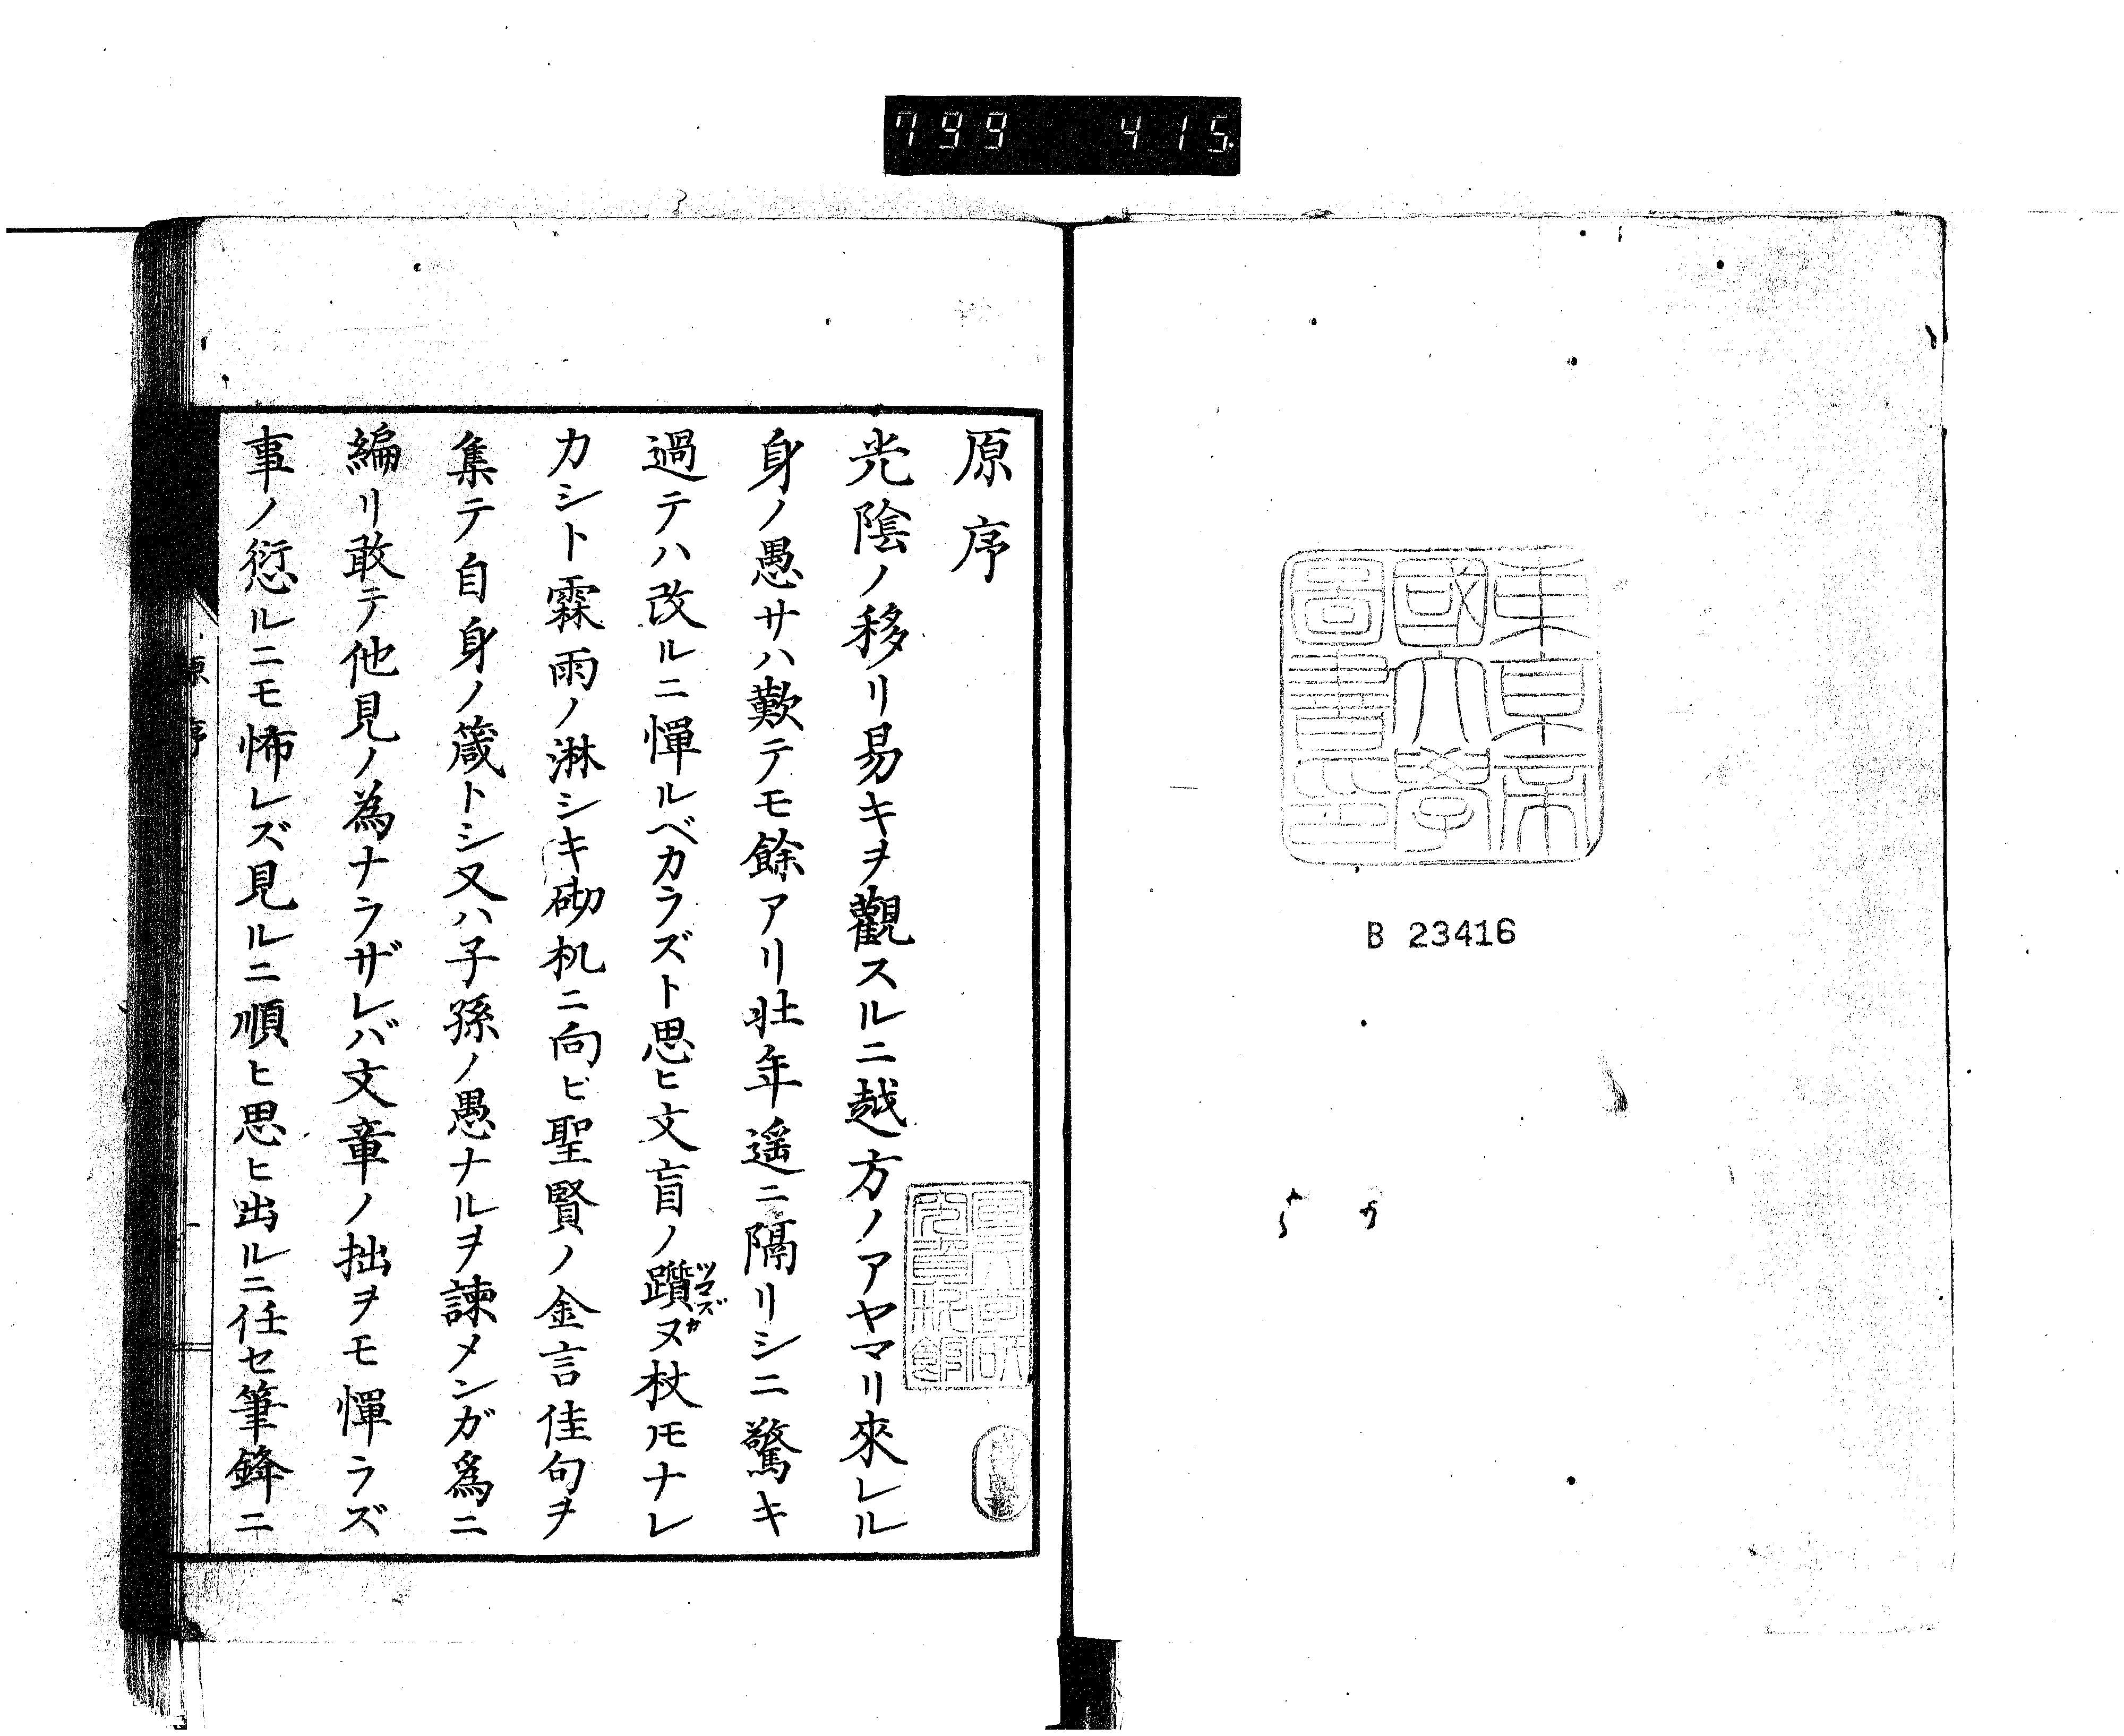 799 415
東京帝
國大學
圖書印
B 23416
原序
光陰ノ移リ易キヲ觀スルニ越方ノアヤマリ來レル
身ノ愚サハ歎テモ餘アリ壯年遥ニ隔リシニ驚キ
過テハ改ルニ憚ルベカラズト思ヒ文盲ノ躓ヌ杖モナレ
ツマヅカ
カシト霖雨ノ淋シキ砌机ニ向ヒ聖賢ノ金言佳句ヲ
集テ自身ノ箴トシ又ハ子孫ノ愚ナルヲ諫メンガ爲ニ
編リ敢テ他見ノ為ナラザレバ文章ノ拙ヲモ憚ラズ
事ノ愆ルニモ怖レズ見ルニ順ヒ思ヒ出ルニ任セ筆鋒ニ
原序